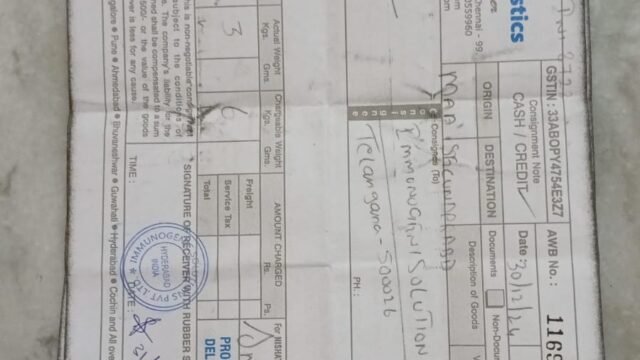 stics
Chennai - 99.
GSTIN : 33ABOPY4754E3Z7
Consignment Note
CASH / CREDIT
AWB No. :
1169
Date : 30/12/24
ORIGIN
DESTINATION
Documents
Non-Docum
MAA
SECUNDRABAD
Description of Goods
Consignee (To)
IMMUNOGEN SOLUTION
Telangana - 500026
PH :
Actual Weight
Kgs.
Gms
3
Chargeable Weight
Kgs.
Gms
6
AMOUNT CHARGED
Rs.
Ps.
Freight
Service Tax
Total
For NISHA
PRO
DEL
his is non-negotiable
subject to the conditions of
y. The company's liability for the
med shall be compensated to a sum
500/- or the value of the goods
ver is less for any cause.
SIGNATURE OF RECEIVER WITH RUBBER S
TIME :
DATE :
HYDERABAD
INDIA
galore ● Pune ● Ahmedabad ● Bhuvaneshwar ● Guwahati ● Hyderabad ● Cochin and All ove